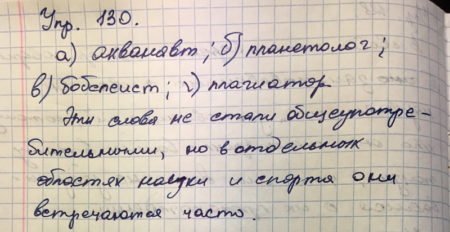 Упр. 130.
а) акванавт; б) планетолог;
в) бобслеист; г) плагиатор
Эти слова не стали общеупотре-
бительными, но в отдельных
областях науки и спорта они
встречаются часто.